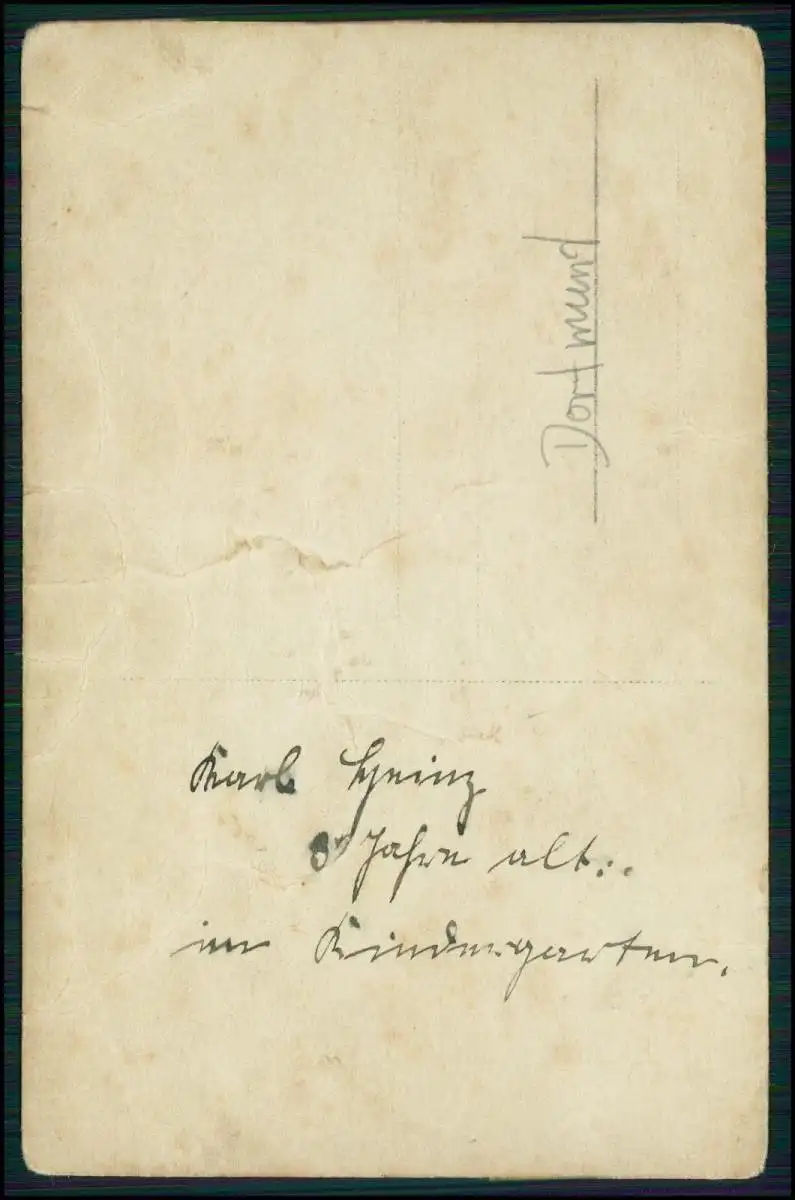 Dortmund
Karl Heinz
Jahre alt..
im Kindergarten.